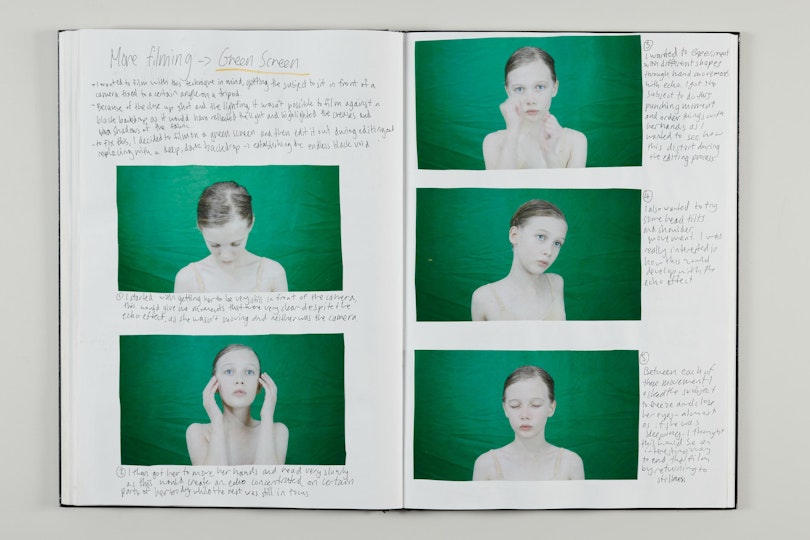 More filming → Green Screen
- I wanted to film with this technique in mind, getting the subject to sit in front of a
camera fixed to a certain angle on a tripod
- Because of the close up shot and the lighting it wasn't possible to film against a
black backdrop as it would have reflected the light and highlighted the creases and
shadows of the fabric
- to fix this, I decided to film on a green screen and then edit it out during editing and
replacing with a deep, dark backdrop → establishing the endless black void
① I started with getting her to be very still in front of the camera,
this would give me moments that were very clear despite the
echo effect, as she wasn't moving and neither was the camera
② I then got her to move her hands and head very slowly
as this would create an echo concentrated on certain
parts of her body while the rest was still in focus
③
I wanted to experiment
with different shapes
through hand movement
with echo. I got the
subject to do this
punching moment
and other things with
her hands as I
wanted to see how
this distort during
the editing process
④
I also wanted to try
some head tilts
and shoulder
movement. I was
really interested in
how this would
develop with the
echo effect
⑤
Between each of
these movement I
asked the subject
to freeze and close
her eyes - almost
as if she was
sleeping. I thought
this would be an
interesting way
to end the film
by returning to
stillness